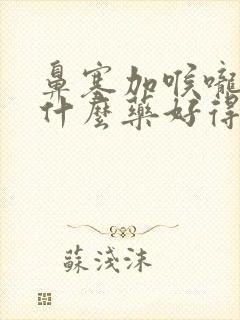 鼻塞加喉嚨
什麼藥好得
蘇淺沫